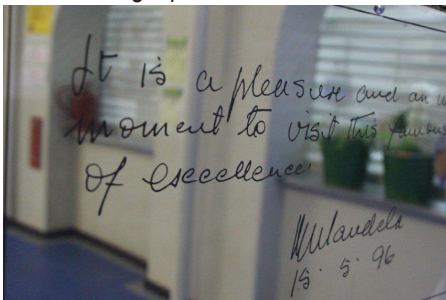 It is a pleasure and an
moment to visit this famous
of excellence
NMandela
15. 5. 96